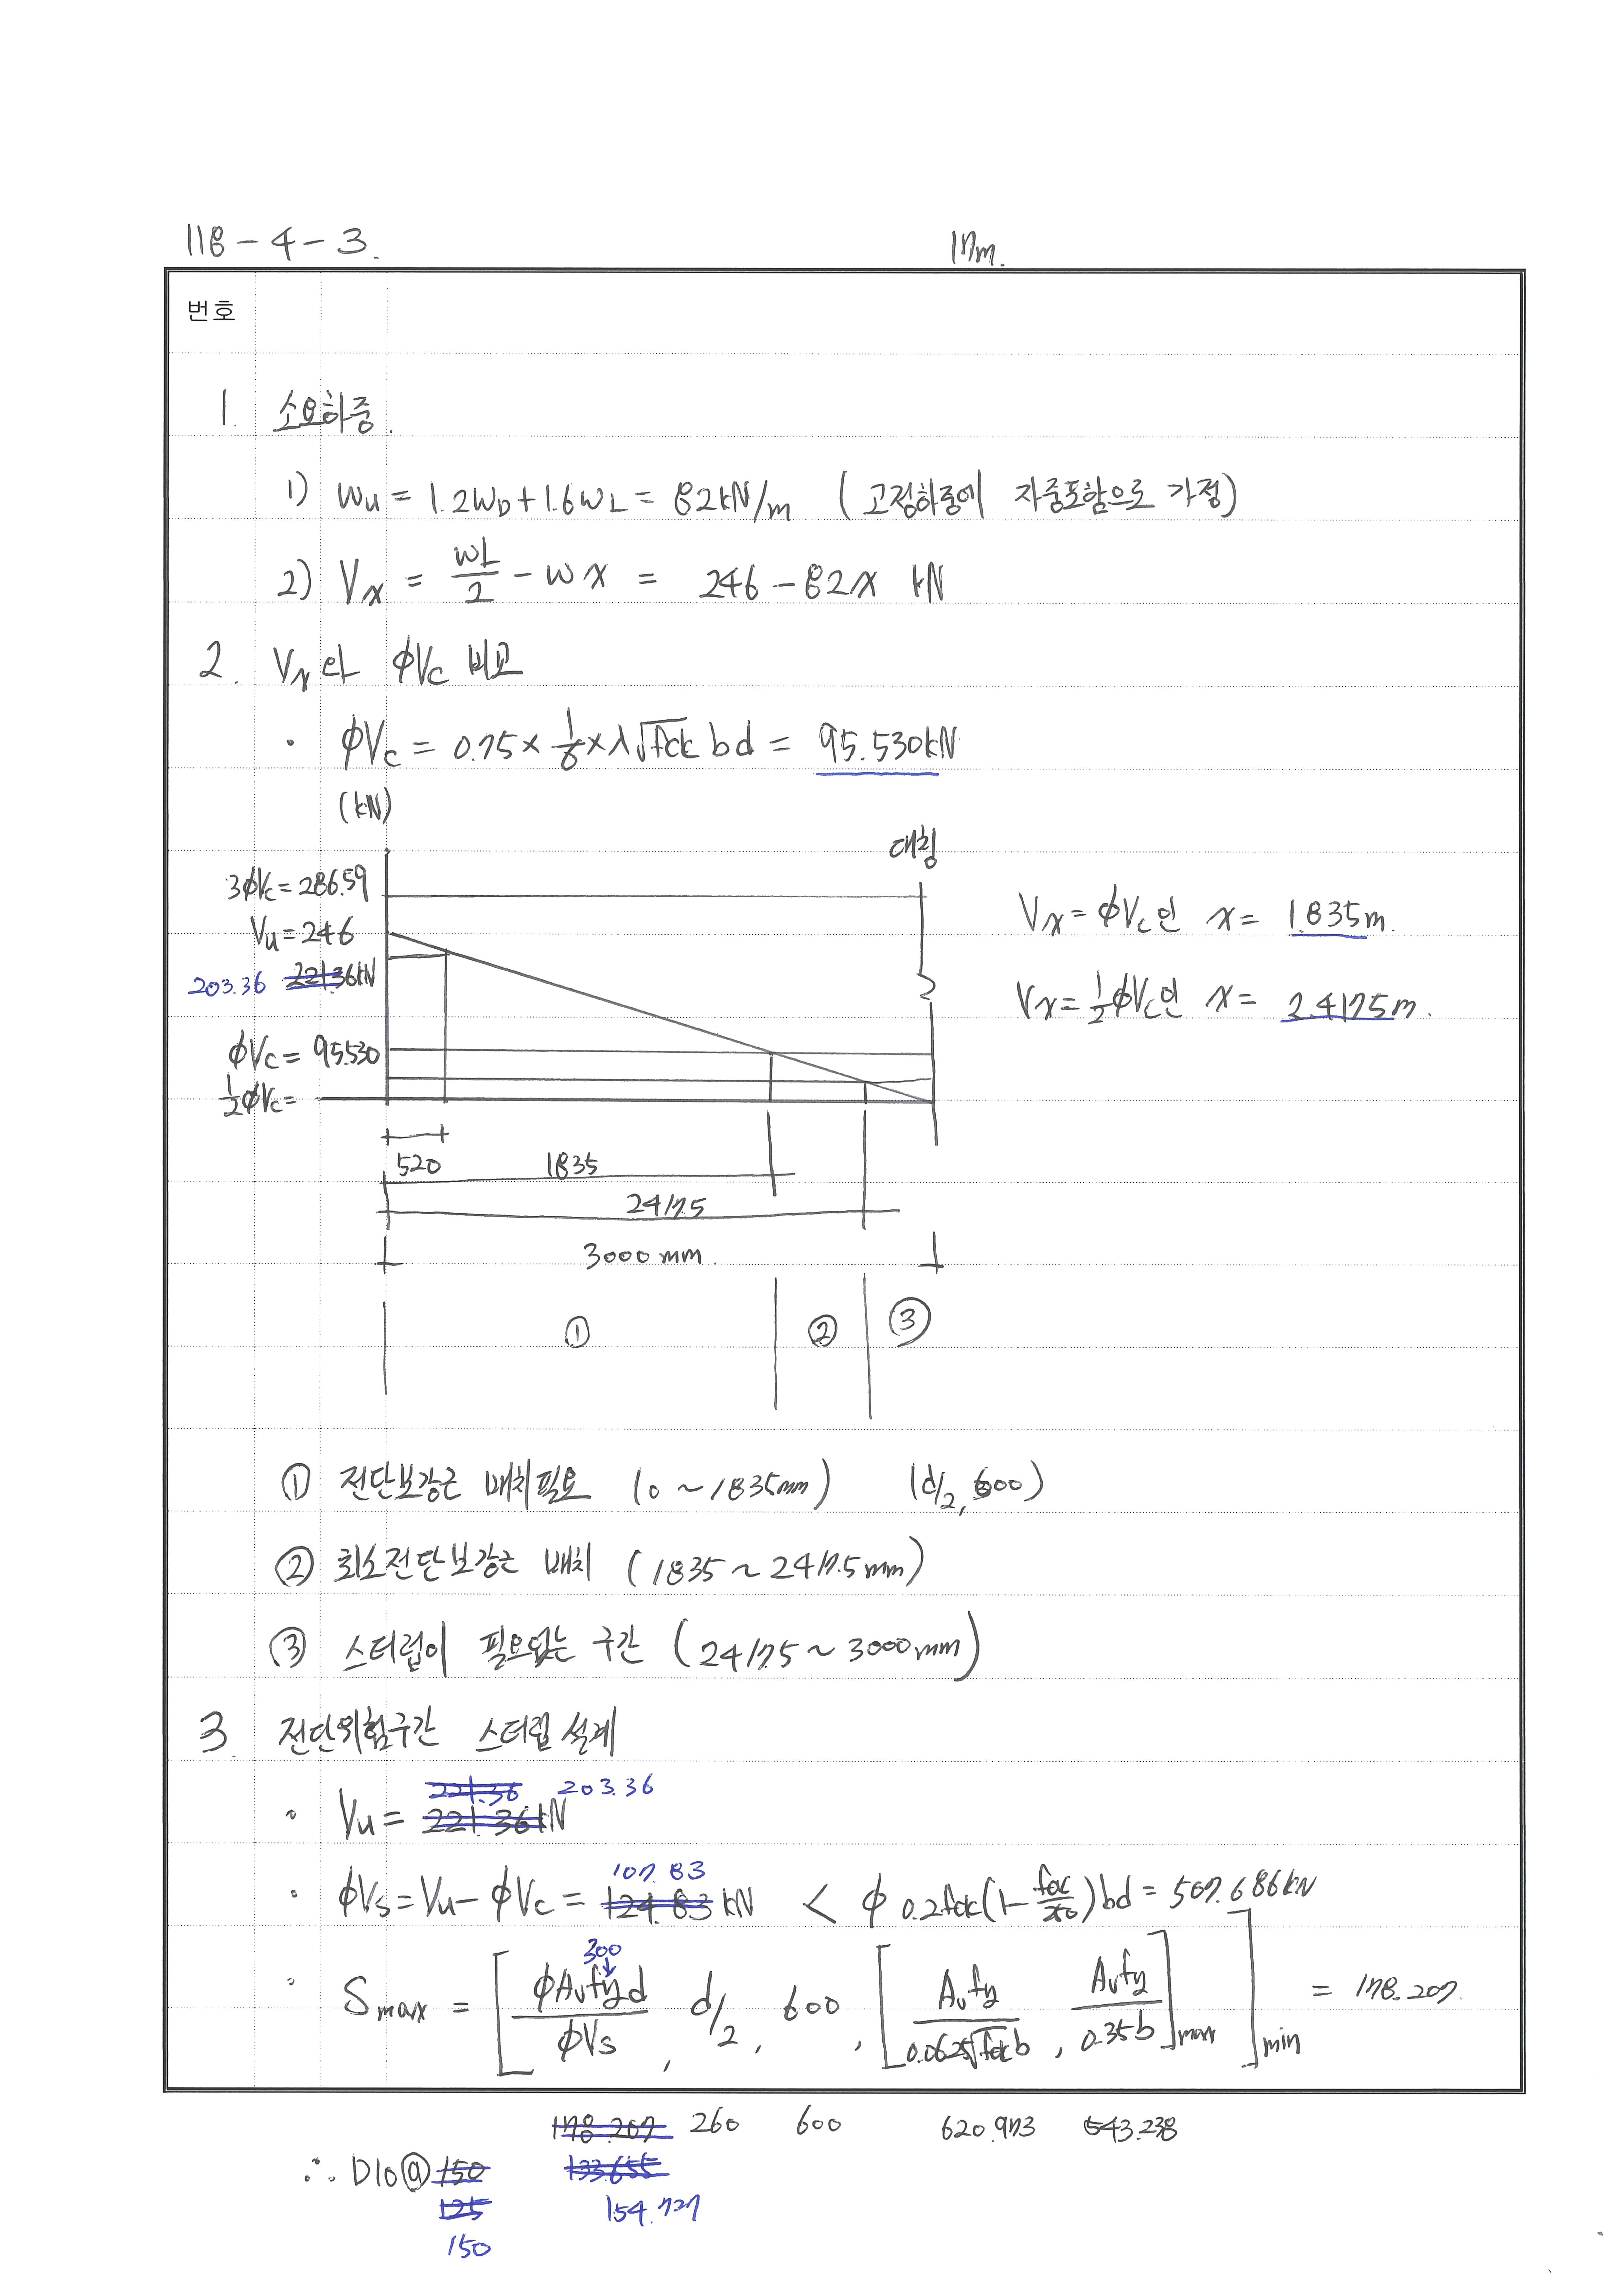 118-4-3. 17m.
번호
1. 소요하중.
1) Wu = 1.2WD + 1.6WL = 82kN/m (고정하중에 자중포함으로 가정)
2) Vx = wL/2 - wx = 246 - 82x kN
2. Vx와 φVc 비교
· φVc = 0.75 × 1/6 × λ√fck bd = 95.530kN
(kN)
대칭
3φVc = 286.59
Vu = 246
203.36 221.36kN
φVc = 95.530
1/2φVc =
Vx = φVc인 x = 1.835m.
Vx = 1/2φVc인 x = 2.4175m.
520 1835
2417.5
3000mm.
① ② ③
① 전단보강근 배치필요 (0 ~ 1835mm) (d/2, 600)
② 최소전단보강근 배치 (1835 ~ 2417.5mm)
③ 스터럽이 필요없는 구간 (2417.5 ~ 3000mm)
3. 전단위험구간 스터럽 설계
221.36 203.36
· Vu = 221.36kN
107.83
· φVs = Vu - φVc = 124.83 kN < φ 0.2fck(1 - fck/250)bd = 507.686kN
300
↓
· Smax = [ φAvfyd/φVs , d/2, 600, [ Avfy/0.0625√fck b , Avfy/0.35b ]max ]min = 178.207.
178.207 260 600 620.973 543.238
∴ D10@150 133.655
125 154.727
150